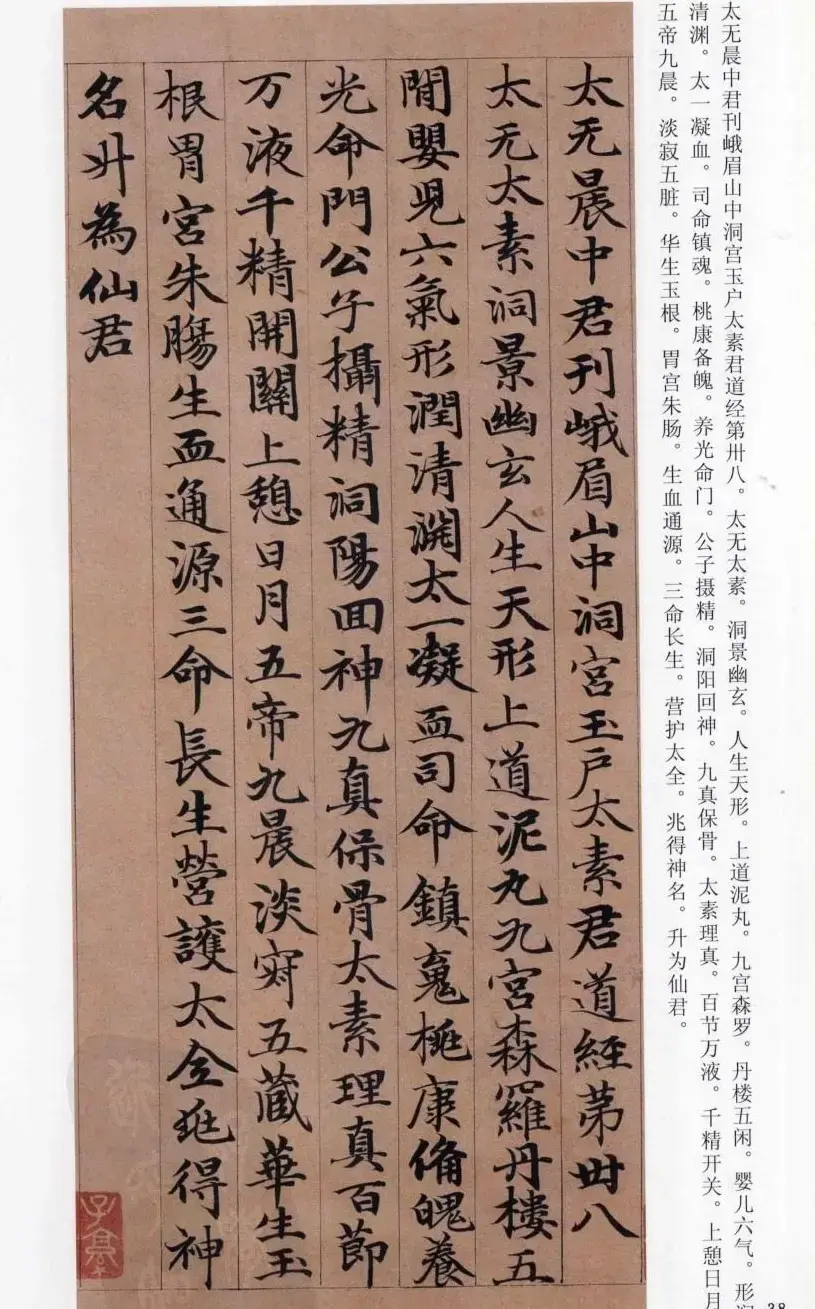 太无晨中君刊峨眉山中洞宫玉户太素君道经第卅八。太无太素。洞景幽玄。人生天形。上道泥丸。九宫森罗。丹楼五闲。婴儿六气。形润
清渊。太一凝血。司命镇魂。桃康备魄。养光命门。公子摄精。洞阳回神。九真保骨。太素理真。百节万液。千精开关。上憩日月
五帝九晨。淡寂五脏。华生玉根。胃宫朱肠。生血通源。三命长生。营护太全。兆得神名。升为仙君。
太无晨中君刊峨眉山中洞宮玉戶太素君道經第卅八
太无太素洞景幽玄人生天形上道泥丸九宮森羅丹樓五
閒嬰兒六氣形潤清淵太一凝血司命鎮魂桃康俻魄養
光命門公子攝精洞陽回神九真保骨太素理真百節
万液千精開關上憩日月五帝九晨淡寂五藏華生玉
根胃宮朱腸生血通源三命長生營護太全兆得神
名升為仙君
38